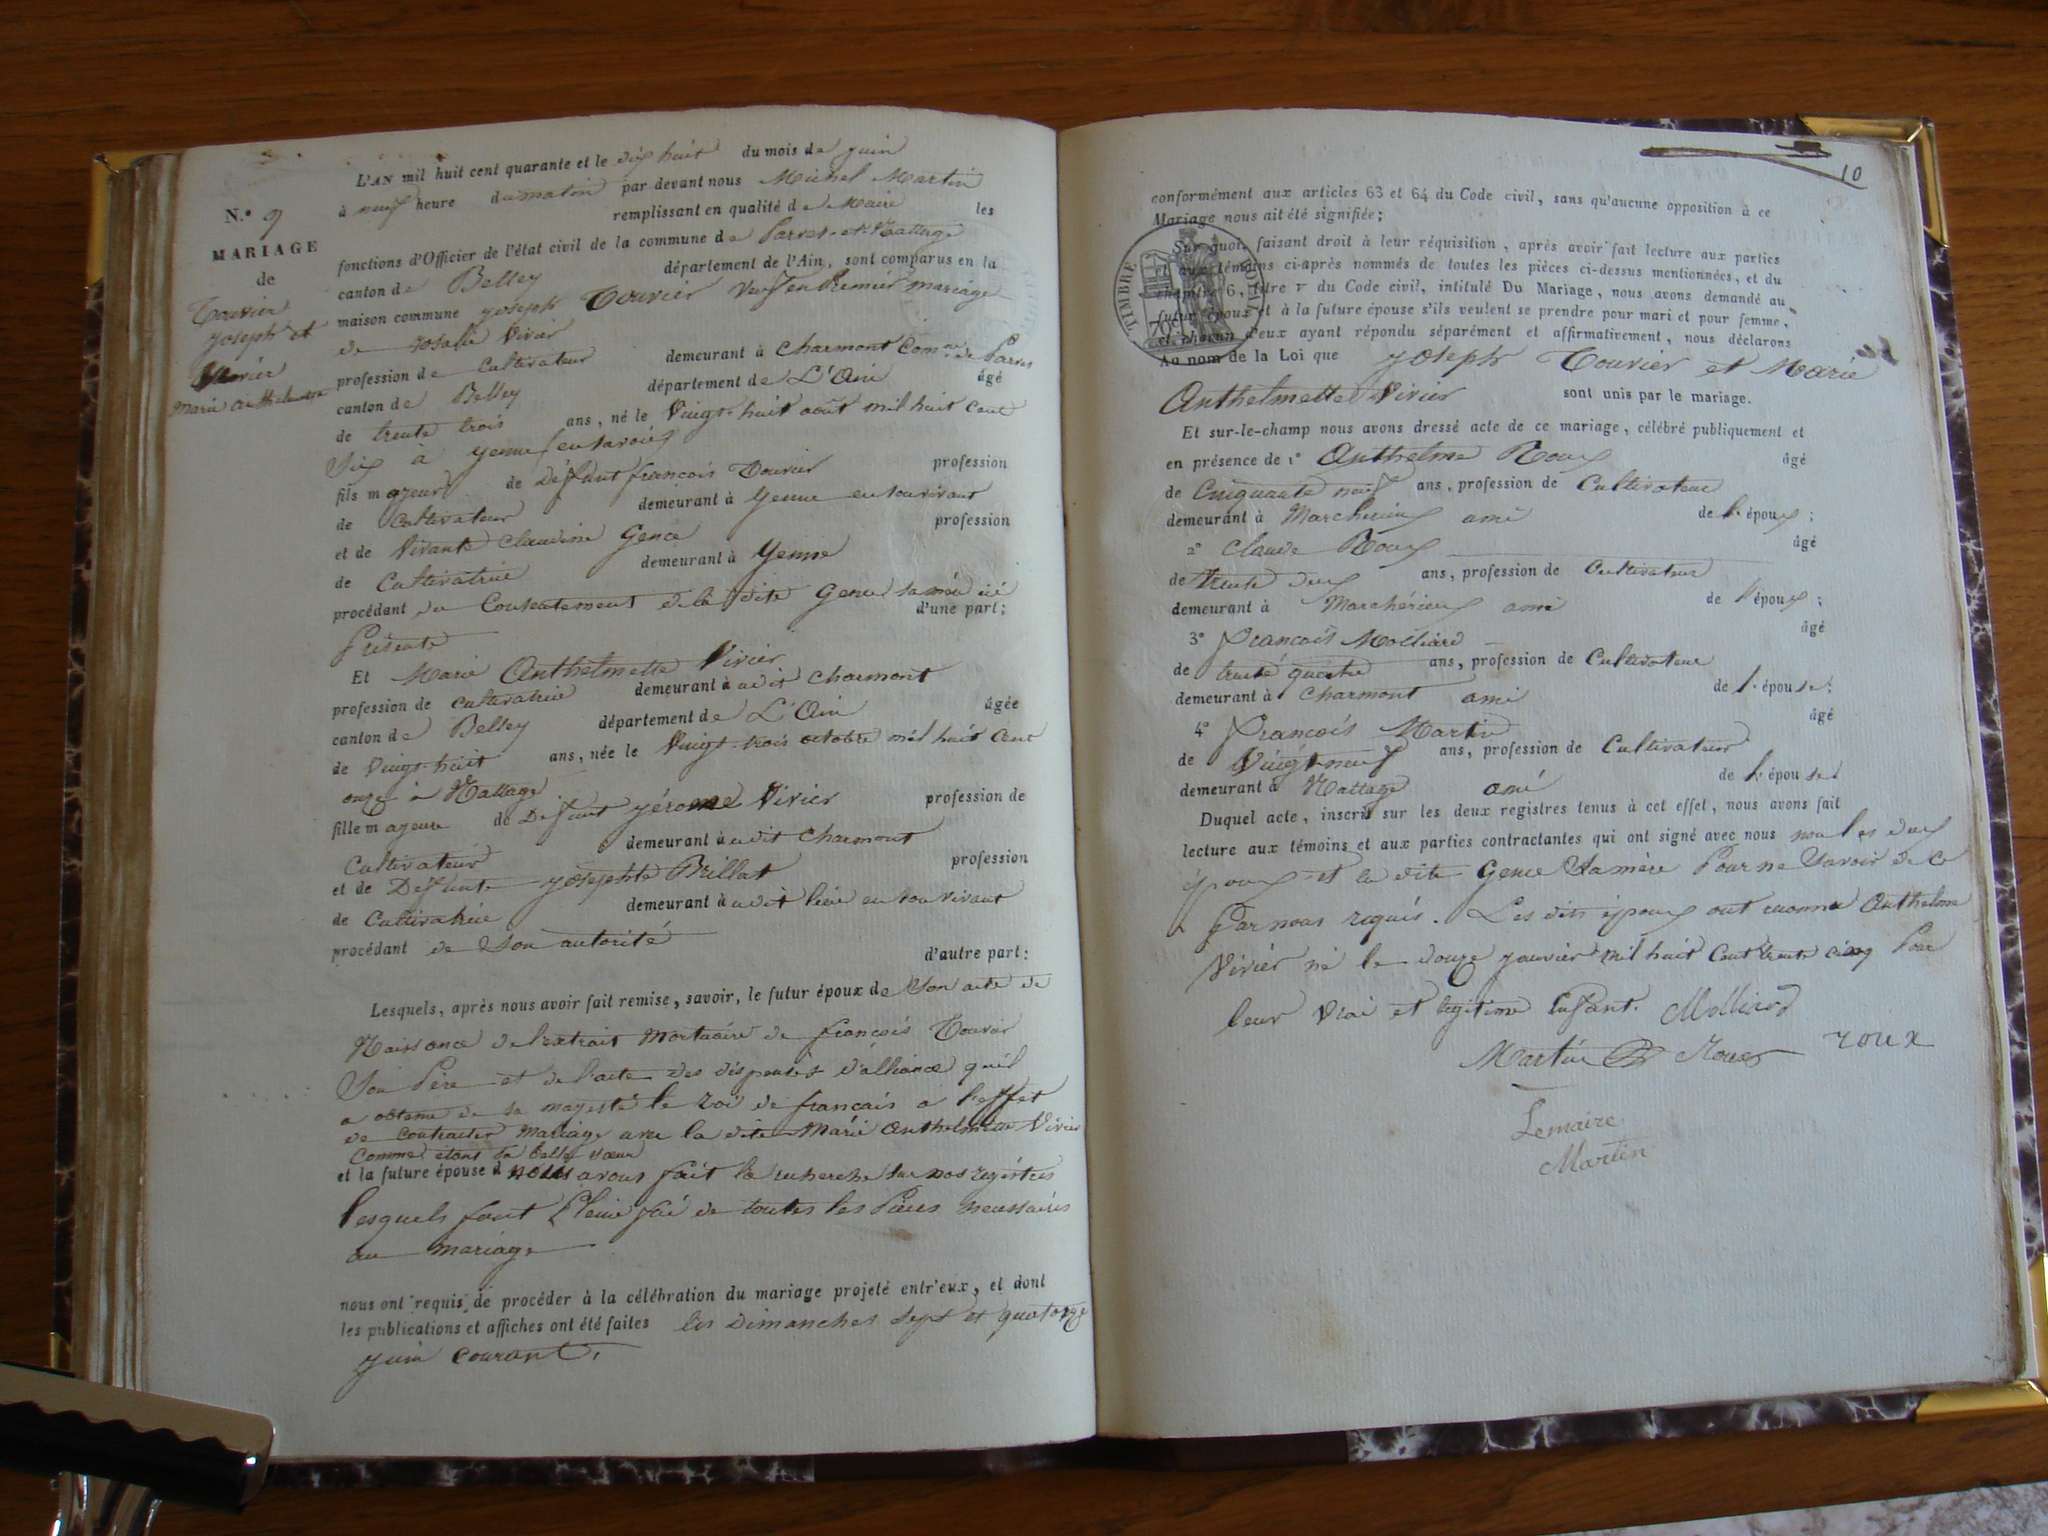 L'AN mil huit cent quarante et le dix huit du mois de juin
à neuf heure du matin par devant nous Michel Martin
remplissant en qualité de Maire les
fonctions d'Officier de l'état civil de la commune de Parves et Nattage
canton de Belley département de l'Ain, sont comparus en la
maison commune joseph Touvier Veuf en Premier mariage
de rosalie Vivier
profession de Cultivateur demeurant à Charmont Comne de Parves
canton de Belley département de L'Ain âgé
de trente trois ans, né le Vingt huit août mil huit Cent
Six à yenne en Savoie
fils majeur de Défunt françois Touvier profession
de Cultivateur demeurant à yenne en son vivant
et de Vivante claudine Gence profession
de Cultivatrice demeurant à Yenne
procédant du Consentement de la dite Gence sa mère ici d'une part;
Présente
Et Marie Anthelmette Vivier
profession de cultivatrice demeurant à udit Charmont
canton de Belley département de L'Ain âgée
de Vingt huit ans, née le Vingt trois octobre mil huit Cent
onze à Nattage
fille majeure de Defunt yérome Vivier profession de
Cultivateur demeurant à udit Charmont
et de Defunte yosephte Brillat profession
de Cultivatrice demeurant à udit lieu en son vivant
procédant de Son autorité
d'autre part:
Lesquels, après nous avoir fait remise, savoir, le futur époux de Son acte de
Naissance de l'extrait Mortuaire de françois Touvier
Son Père et de l'acte des dispenses d'alliance qu'il
a obtenu de sa majesté le roi de français a l'effet
de contracter Mariage avec la dite Marie Anthelmette Vivier
Comme étant sa belle sœur
et la future épouse d nous avons fait la recherche sur nos registres
lesquels font Pleine foi de toutes les Pièces necessaires
au mariage
nous ont requis de procéder à la célébration du mariage projeté entr'eux, et dont
les publications et affiches ont été faites les Dimanches sept et quatorze
yuin courant.
N.º 9
MARIAGE
de
Touvier
yoseph et
Vivier
Marie Anthelmette
10
conformément aux articles 63 et 64 du Code civil, sans qu'aucune opposition à ce
Mariage nous ait été signifiée;
Sur quoi, faisant droit à leur réquisition, après avoir fait lecture aux parties
et aux témoins ci-après nommés de toutes les pièces ci-dessus mentionnées, et du
chapitre 6, titre V du Code civil, intitulé Du Mariage, nous avons demandé au
futur époux et à la future épouse s'ils veulent se prendre pour mari et pour femme,
et chacun d'eux ayant répondu séparément et affirmativement, nous déclarons
TIMBRE ROYAL
Au nom de la Loi que yoseph Touvier et Marie
Anthelmette Vivier sont unis par le mariage.
Et sur-le-champ nous avons dressé acte de ce mariage, célébré publiquement et
en présence de 1º Anthelme Roux âgé
de Cinquante neuf ans, profession de Cultivateur
demeurant à Marcherieux ami de l'époux;
2º Claude Roux âgé
de trente deux ans, profession de Cultivateur
demeurant à Marchérieux ami de l'époux;
3º François Molliard âgé
de trente quatre ans, profession de Cultivateur
demeurant à Charmont ami de l'épouse;
4º François Martin âgé
de Vingt neuf ans, profession de Cultivateur
demeurant à Nattage ami de l'épouse
Duquel acte, inscrit sur les deux registres tenus à cet effet, nous avons fait
lecture aux témoins et aux parties contractantes qui ont signé avec nous non les dux
époux et la dite Gence Sa mère Pour ne Savoir de ce
Par nous requis. Les dits époux ont reconnu Anthelme
Vivier né le douze janvier mil huit Cent trente cinq Pour
leur Vrai et legitime Enfant. Molliard
Martin Roux roux
Lemaire
Martin